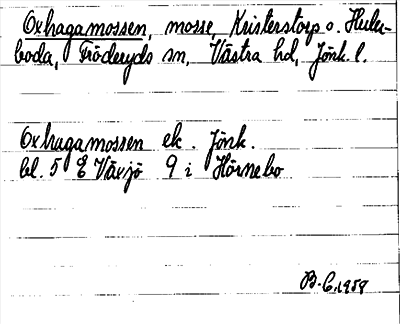 Oxhagamossen, mosse, Kristerstorp o. Huler-
boda, Fröderyds sn, Västra hd, Jönk. l.
Oxhagamossen ek. Jönk.
bl. 5 E Växjö 9 i Hörnebo
B. G. 1959